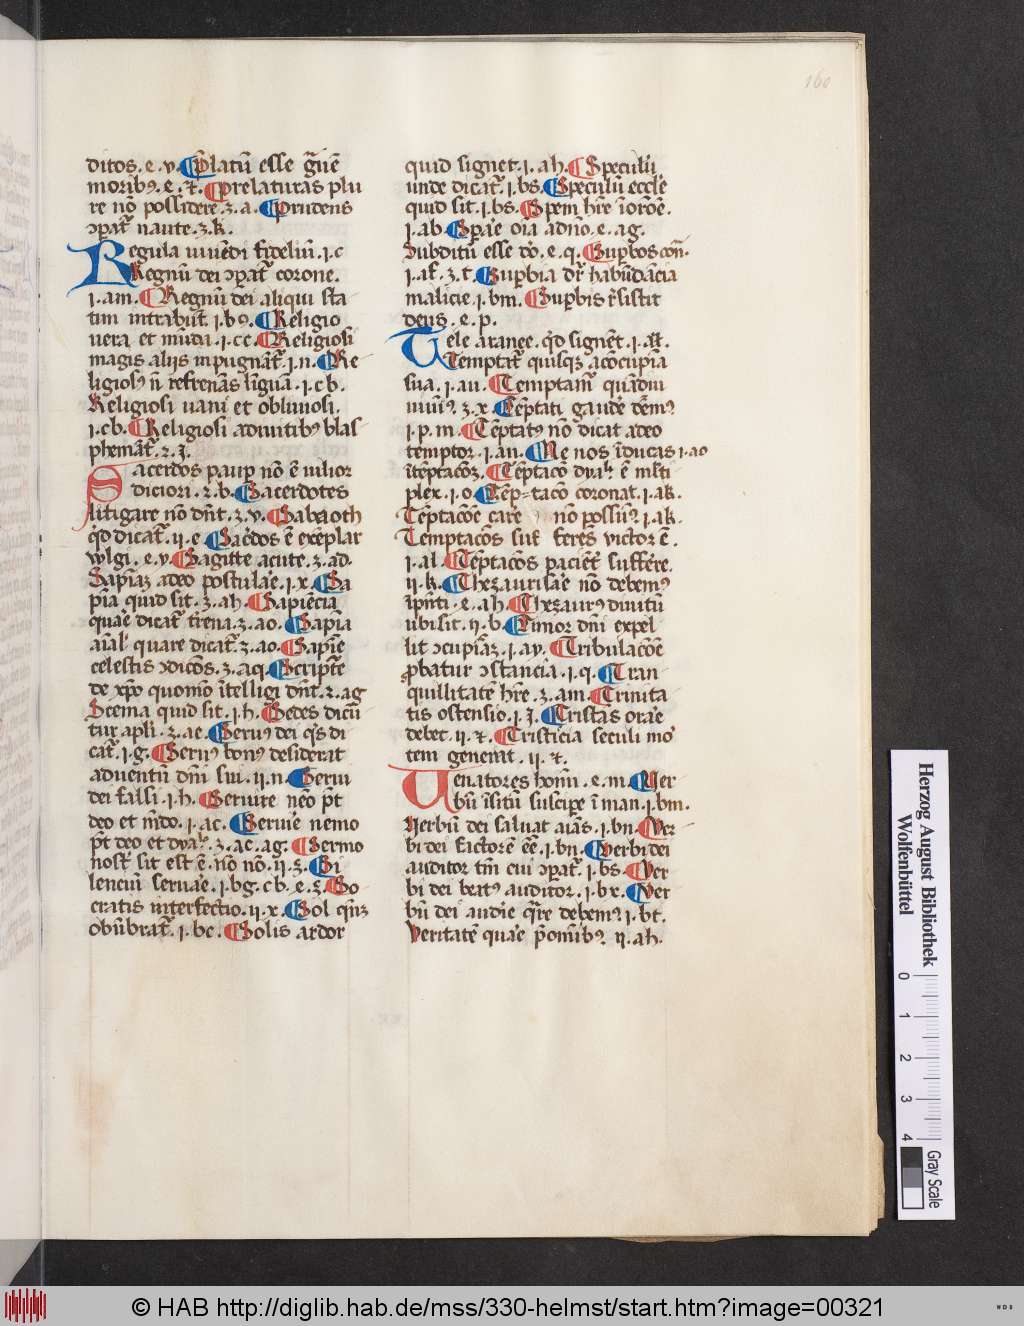 160
ditos. e. v. ¶ p̄latū esse ḡuē
moribꝰ. e. ⁊. ¶ prelaturas plu
re nō possidere. ꝫ. a. ¶ prudens
ↄꝑat᷑ naute. ꝫ. k.
Regula viuēdi fideliū. j. c
Regnū dei ↄꝑat᷑ corone.
j. am. ¶ Regnū dei aliqui sta
tim intrabūt. j. bꝰ. ¶ Religio
uera et muda. j. cc. ¶ Religiosi
magis alijs inpugnāt᷑. j. n. ¶ Re
ligiosꝰ n̄ refrenās linguā. j. cb.
Religiosi uani et obliuiosi.
j. cb. ¶ Religiosi a diuitibꝰ blas
phemāt᷑. ꝛ. ꝫ.
Sacerdos paup nō ē iūior
diciori. ꝛ. b. ¶ Sacerdotes
litigare nō dn̄t. ꝫ. v. ¶ Sabaoth
qd̓ dicat᷑. ij. e. ¶ Sac̓dos ē exēplar
vulgi. e. v. ¶ Sagitte acute. ꝫ. ad.
Sapīaꝫ a deo postula̓e. j. x. ¶ Sa
pīa quid sit. ꝫ. ah. ¶ Sapiēcia
qua̓e dicat᷑ t̓rena. ꝫ. ao. ¶ Sapīa
aīal̓ quare dicat᷑. ꝫ. ao. ¶ Sapīe
celestis ↄdicōs. ꝫ. aq. ¶ Script̄e
de xp̄o quomō ītelligi dn̄t. ꝛ. ag
Scema quid sit. j. h. ¶ Sedes dicū
tur apl̄i. ꝫ. ae. ¶ Seruꝰ dei qͥs di
cat᷑. j. g. ¶ Seruꝰ bonꝰ desiderat
aduentū dn̄i sui. ij. n. ¶ Serui
dei falsi. j. h. ¶ Seruire nēo pt̄
deo et mūdo. j. ac. ¶ Serui̓e nemo
pt̄ deo et dyal̓. ꝫ. ac. ag. ¶ Sermo
nost᷑ sit est ē. nō nō. ij. ꝫ. ¶ Si
lenciū serua̓e. j. bg. cb. e. ꝫ. ¶ So
cratis interfectio. ij. x. ¶ Sol
obūbrat᷑. j. bc. ¶ Solis ardor
quid signet. j. ah. ¶ Speculū
unde dicat᷑. j. bs. ¶ Speculū eccl̄e
quid sit. j. bs. ¶ Spem hr̄e ī orōe.
j. ab. ¶ Spa̓e oīa a dn̄o. e. ag.
Subditū esse do̓. e. q. ¶ Supbos
j. af. ꝫ. t. ¶ Supbia dr̄ habūdācia
malicie. j. bm. ¶ Supbis r̄sistit
deus. e. p.
Tele aranee qd̓ signet. j. ak.
Temptat᷑ quisqꝫ a ↄcupīa
sua. j. au. ¶ Temptam᷑ quādiu
viuīꝰ. ꝫ. x. ¶ Tēptati gaude̓ dēmꝰ
j. p. m. ¶ Tēptatꝰ nō dicat a deo
temptor. j. an. ¶ Ne nos īducas j. ao
ī tēptacōꝫ. ¶ Tēptacō dyal̓. ē ml̄ti
plex. j. o. ¶ Tēp=tacō coronat. j. ak.
Tēptacōe care nō possūꝰ j. ak.
Temptacōs suf feres̄ victor ē.
j. al. ¶ Tēptacōs pacien̄t suffe̓re.
ij. k. ¶ Thezaurisa̓e nō debemꝰ
ī pn̄ti. e. ah. ¶ Thezaurꝰ diuitū
ubi sit. ij. b. ¶ Timor dn̄i expel
lit ↄcupīāꝫ. j. ay. ¶ Tribulacōe
ꝓbatur ↄstancia. j. q. ¶ Tran
quillitatē hr̄e. ꝫ. am. ¶ Trinita
tis ostensio. j. ꝫ. ¶ Tristas ora̓e
debet. ij. ⁊. ¶ Tristicia seculi mo̓
tem generat. ij. ⁊.
Uenatores homī. e. m. ¶ Ver
bū īsitū suscipe ī man. j. bm.
Verbū dei saluat aīas. j. bn. ¶ Ver
bi dei factorē eē. j. bn. ¶ Verbi dei
auditor tm̄ cui ↄꝑat᷑. j. bs. ¶ Ver
bi dei beatꝰ auditor. j. bx. ¶ Ver
bū dei audi̓e qr̄e debemꝰ j. bt.
Veritatē qua̓e p̄ om̄ibꝰ. ij. ah.
Herzog August Bibliothek
Wolfenbüttel
0 1 2 3 4
Gray Scale
© HAB http://diglib.hab.de/mss/330-helmst/start.htm?image=00321